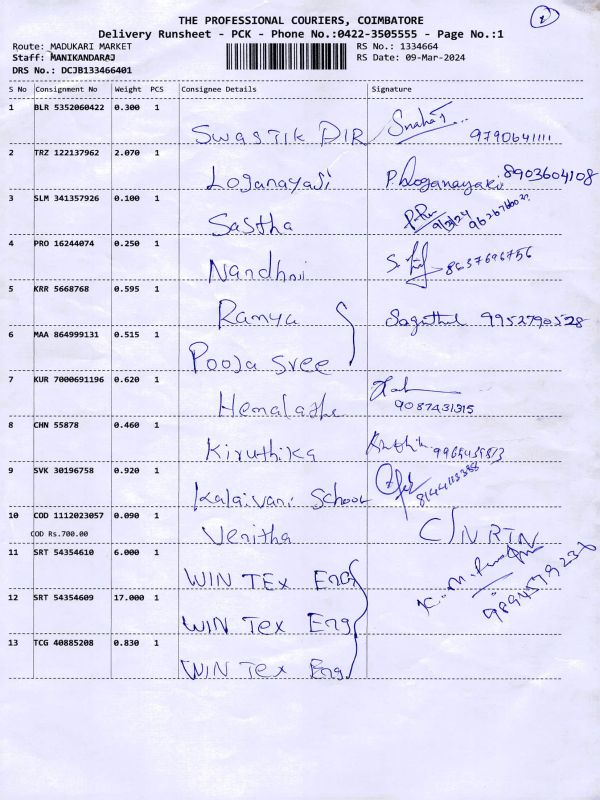 THE PROFESSIONAL COURIERS, COIMBATORE
Delivery Runsheet - PCK - Phone No.:0422-3505555 - Page No.:1
Route: MADUKARI MARKET
RS No.: 1334664
Staff: MANIKANDARAJ
RS Date: 09-Mar-2024
DRS No.: DCJB133466401
S No Consignment No Weight PCS Consignee Details Signature
1 BLR 5352060422 0.300 1
Swastik DIR 9790641111
2 TRZ 122137962 2.070 1
Loganayaji P. Loganayaki 8903604108
3 SLM 341357926 0.100 1
Sastha 9/3/24
4 PRO 16244074 0.250 1
Nandhni 8637696756
5 KRR 5668768 0.595 1
Ramya 9952790528
6 MAA 864999131 0.515 1
Pooja Sree
7 KUR 7000691196 0.620 1
Hemalathe 9087431315
8 CHN 55878 0.460 1
Kiruthika
9 SVK 30196758 0.920 1
Kalaivani School
10 COD 1112023057 0.090 1
COD Rs.700.00
Venitha C/N RTN
11 SRT 54354610 6.000 1
WIN TEX Eng
12 SRT 54354609 17.000 1
WIN Tex Eng
13 TCG 40885208 0.830 1
WIN Tex Eng